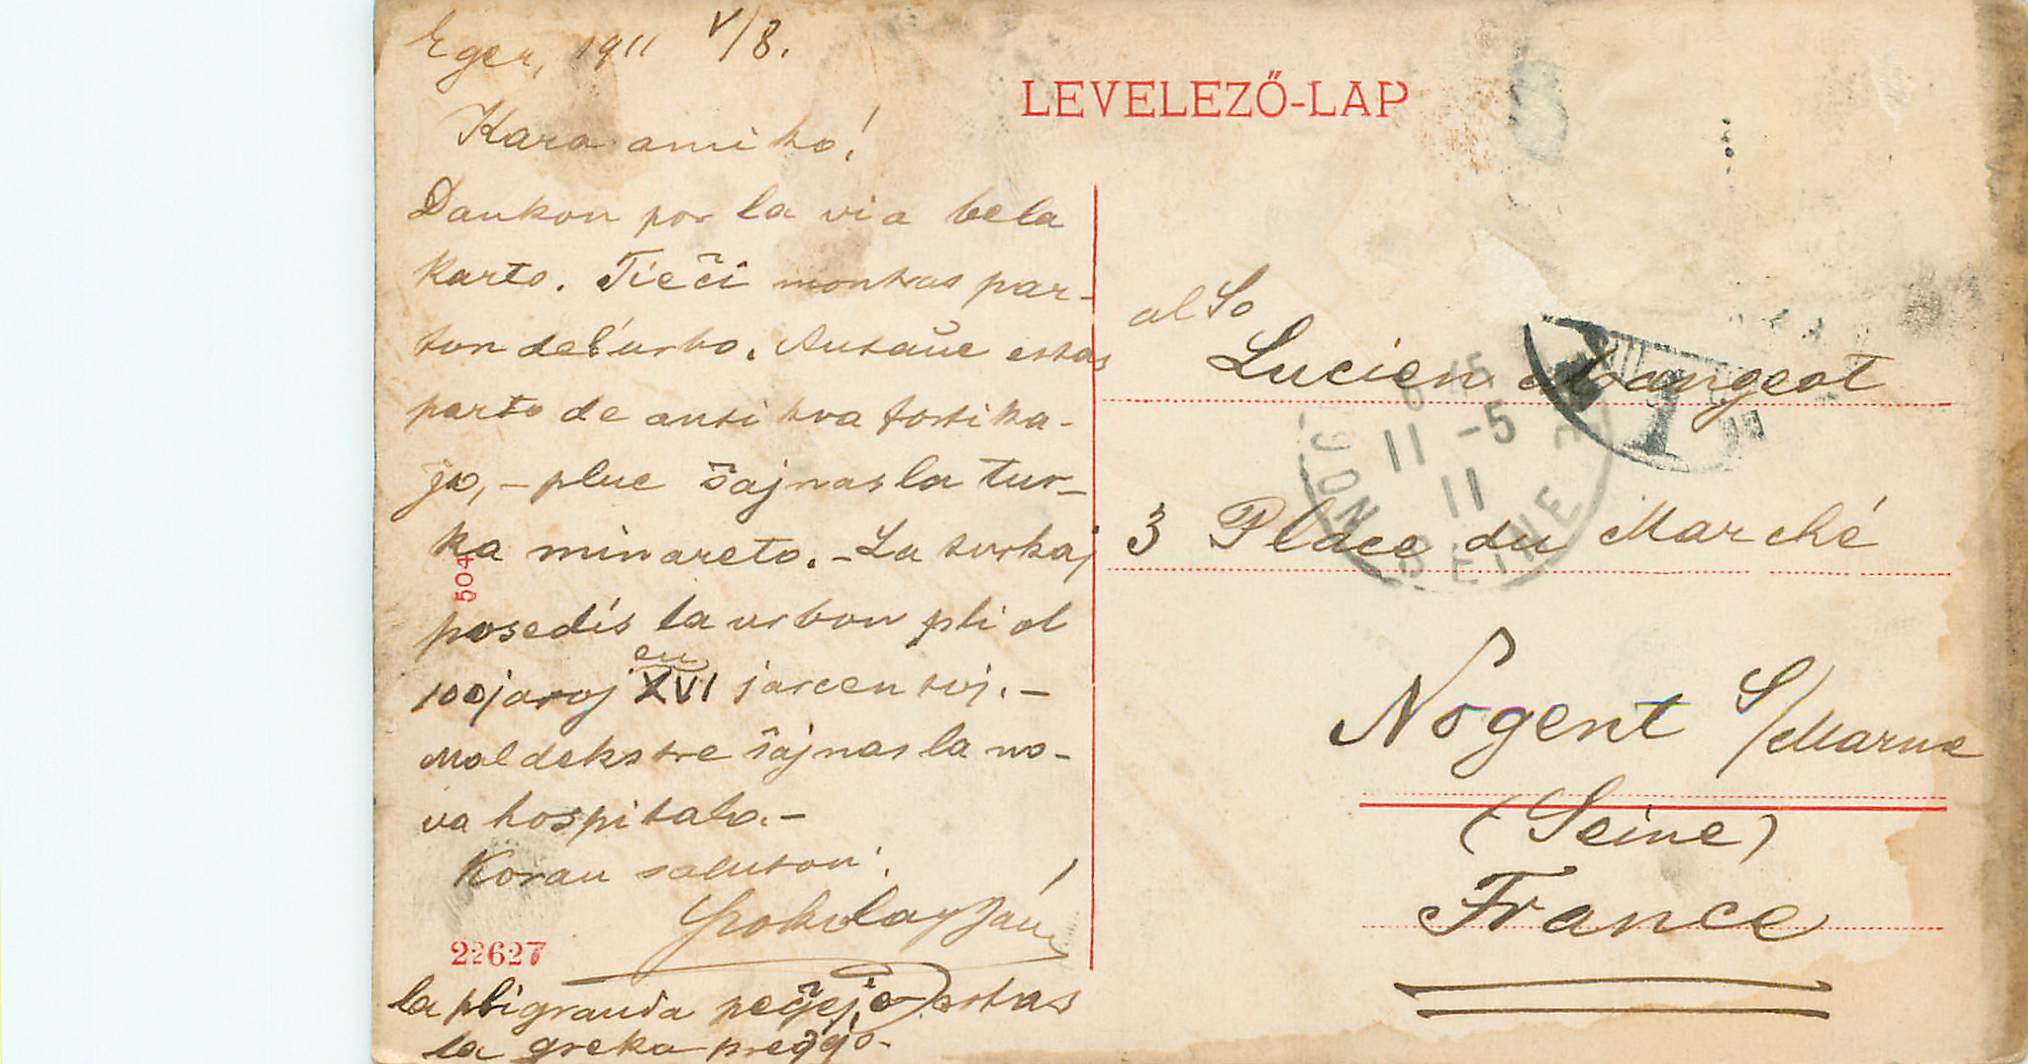 Eger, 1911 V/8.
Kara amiko!
Dankon por la via bela
karto. Tieĉi montras par-
ton de l' urbo. Antaŭe estas
parto de antikva fortika-
ĵo, - plue ŝajnas la tur-
ka minareto. - La turkaj
posedis la urbon pli ol
100 jaroj en XVI jarcentoj. -
Maldekstre ŝajnas la no-
va hospitalo. -
Koran saluton!
la pli granda estas
la greka preĝejo.
504
22627
LEVELEZŐ-LAP
al So
Lucien Mangeot
3 Place du Marché
Nogent S/Marne
(Seine)
France
6 45
11 -5
11
SEINE
T